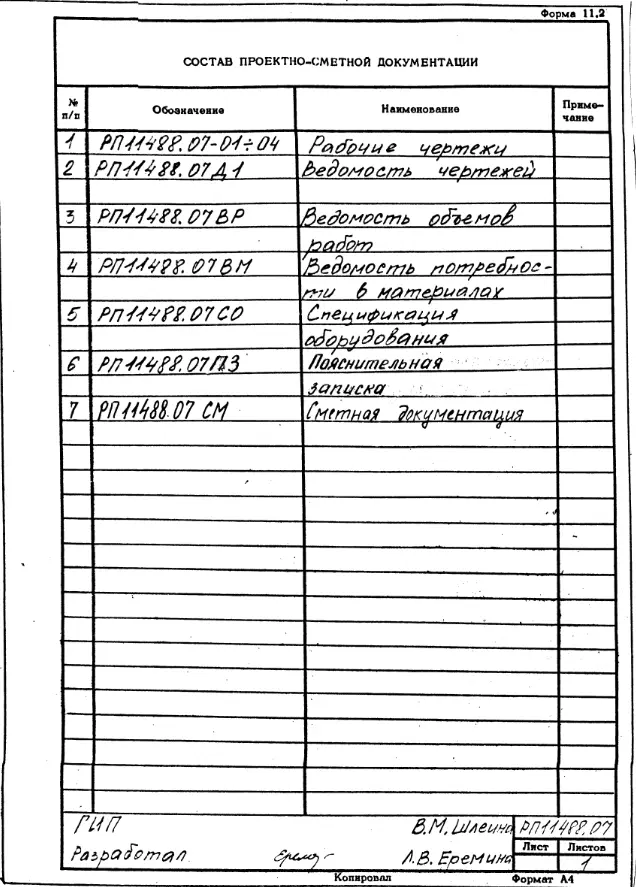 Форма 11.2
СОСТАВ ПРОЕКТНО-СМЕТНОЙ ДОКУМЕНТАЦИИ
№ п/п Обозначение Наименование Приме-чание
1 РП11488.07-01÷04 Рабочие чертежи
2 РП11488.07Д1 Ведомость чертежей
3 РП11488.07ВР Ведомость объемов
работ
4 РП11488.07ВМ Ведомость потребнос-
ти в материалах
5 РП11488.07СО Спецификация
оборудования
6 РП11488.07ПЗ Пояснительная
записка
7 РП11488.07 СМ Сметная документация
ГИП В.М. Шлеина РП11488.07
Лист Листов
Разработал Л.В. Еремина 1
Копировал Формат А4